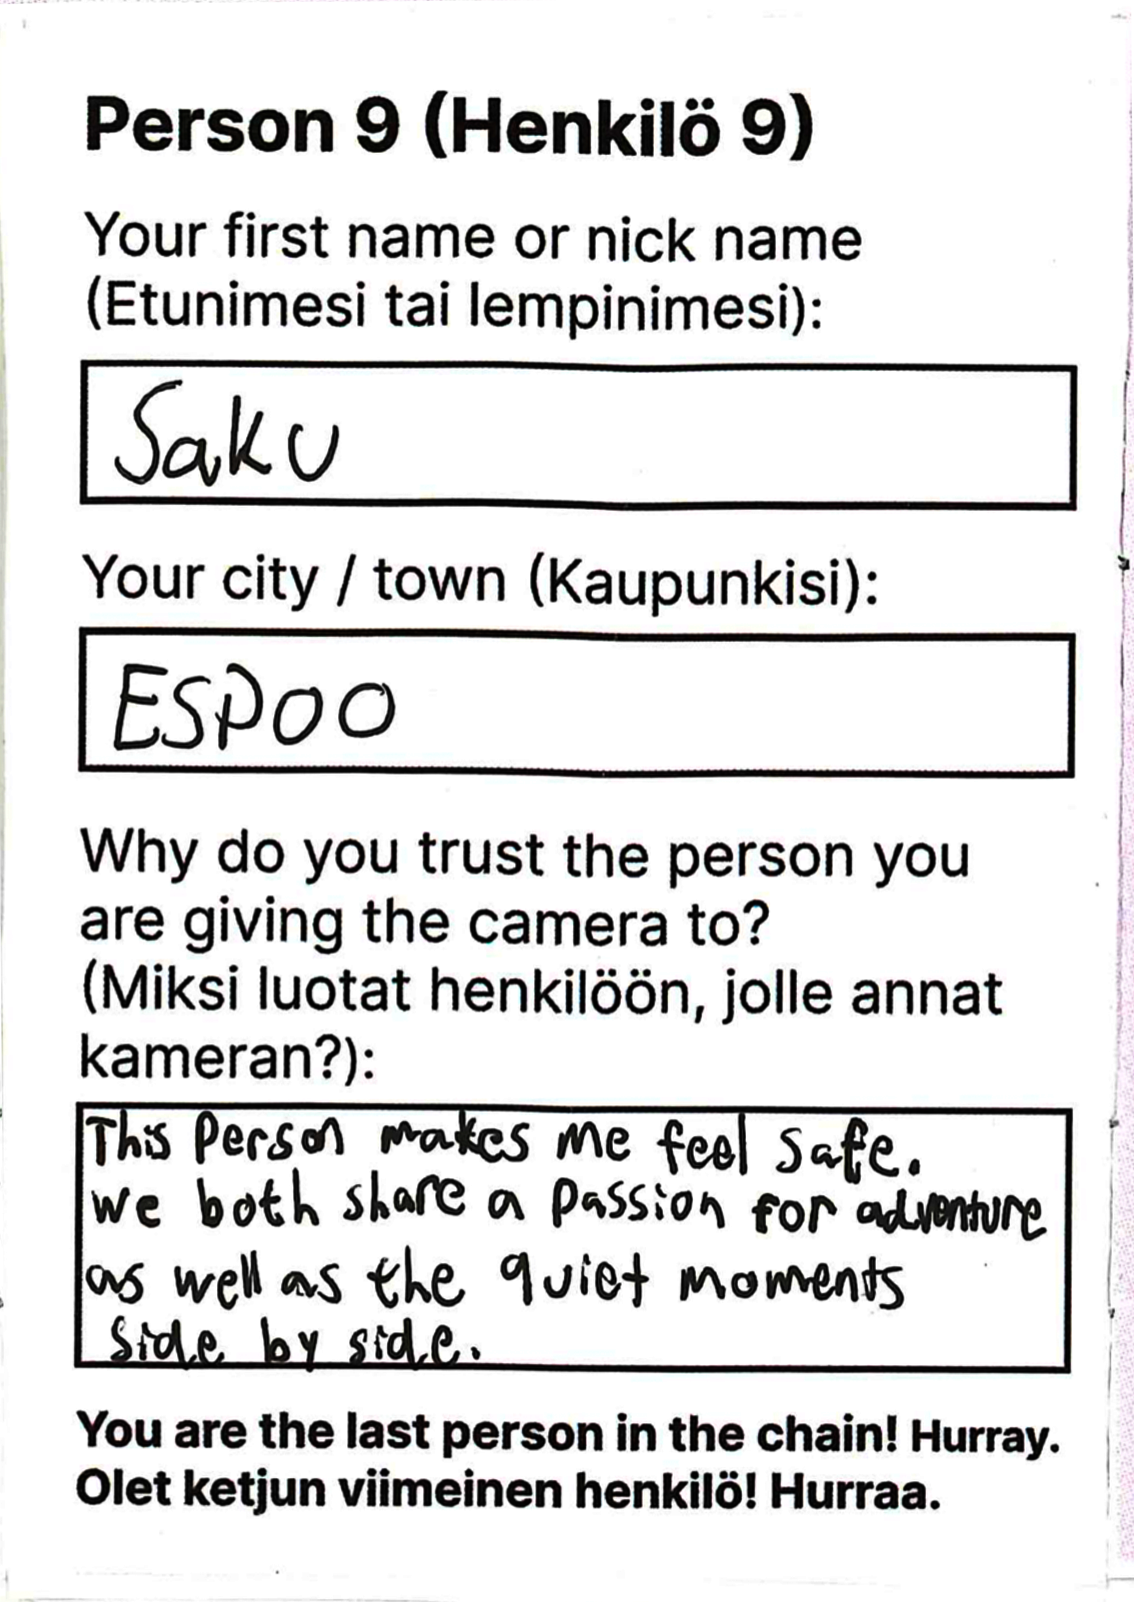 Person 9 (Henkilö 9)
Your first name or nick name
(Etunimesi tai lempinimesi):
Saku
Your city / town (Kaupunkisi):
ESPOO
Why do you trust the person you
are giving the camera to?
(Miksi luotat henkilöön, jolle annat
kameran?):
This Person makes me feel safe.
we both share a passion for adventure
as well as the quiet moments
side by side.
You are the last person in the chain! Hurray.
Olet ketjun viimeinen henkilö! Hurraa.